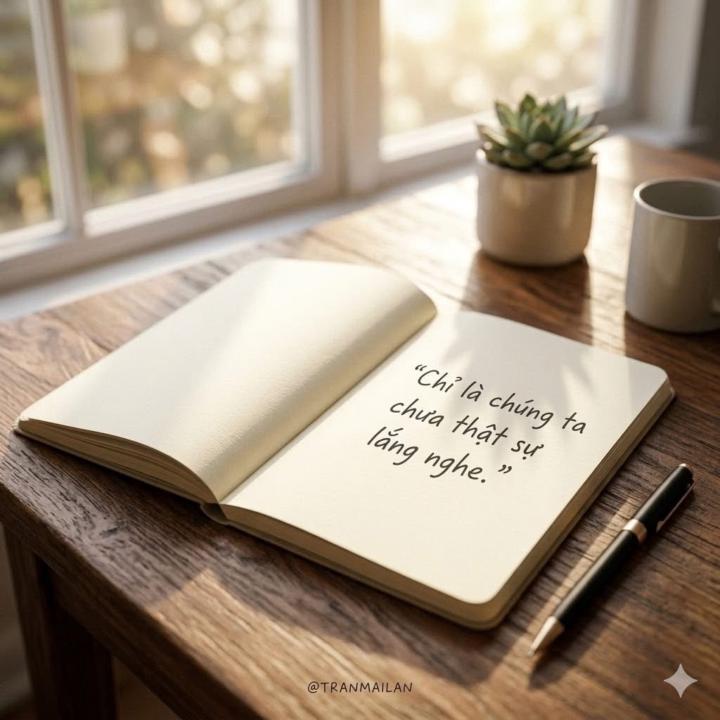 “Chỉ là chúng ta
chưa thật sự
lắng nghe.”
@TRANMAILAN